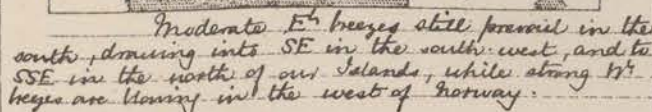 Moderate Ely breezes still prevail in the
south, drawing into SE in the south-west, and to
SSE in the north of our Islands, while strong Wly
bre[e]zes are blowing in the west of Norway.